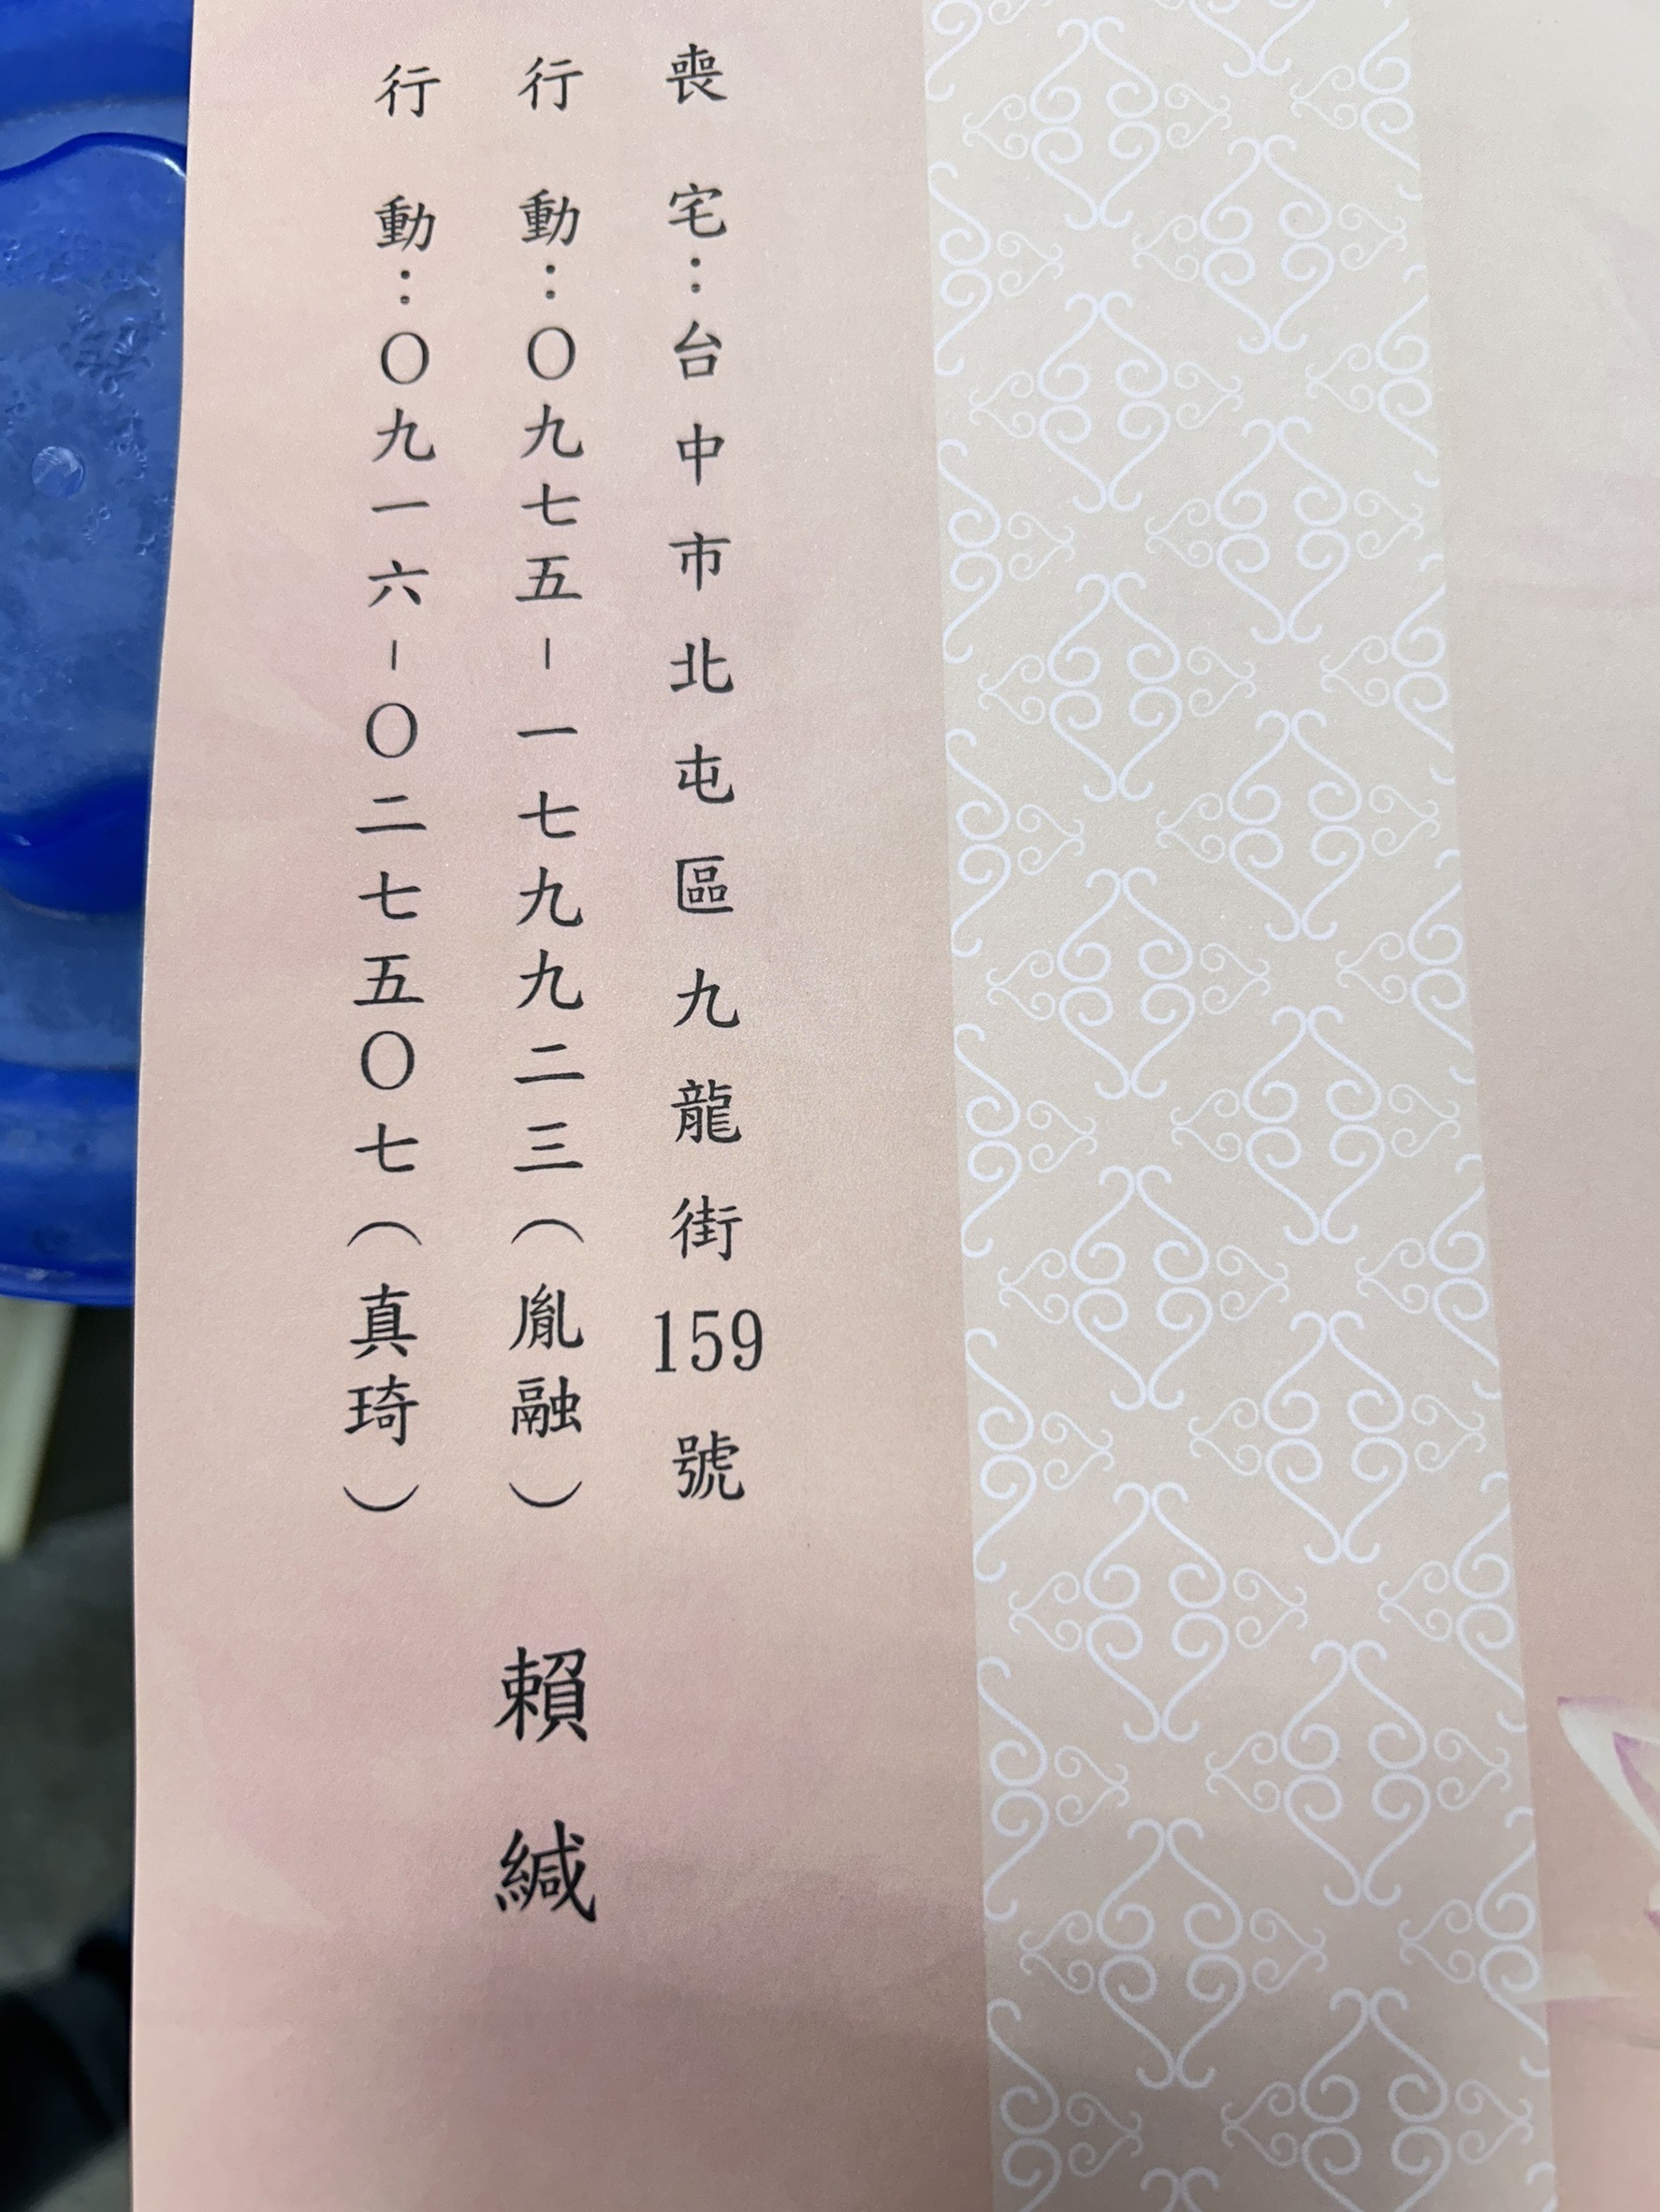 喪宅：台中市北屯區九龍街159號
行動：〇九七五-一七九九二三（胤融）
行動：〇九一六-〇二七五〇七（真琦）
賴緘